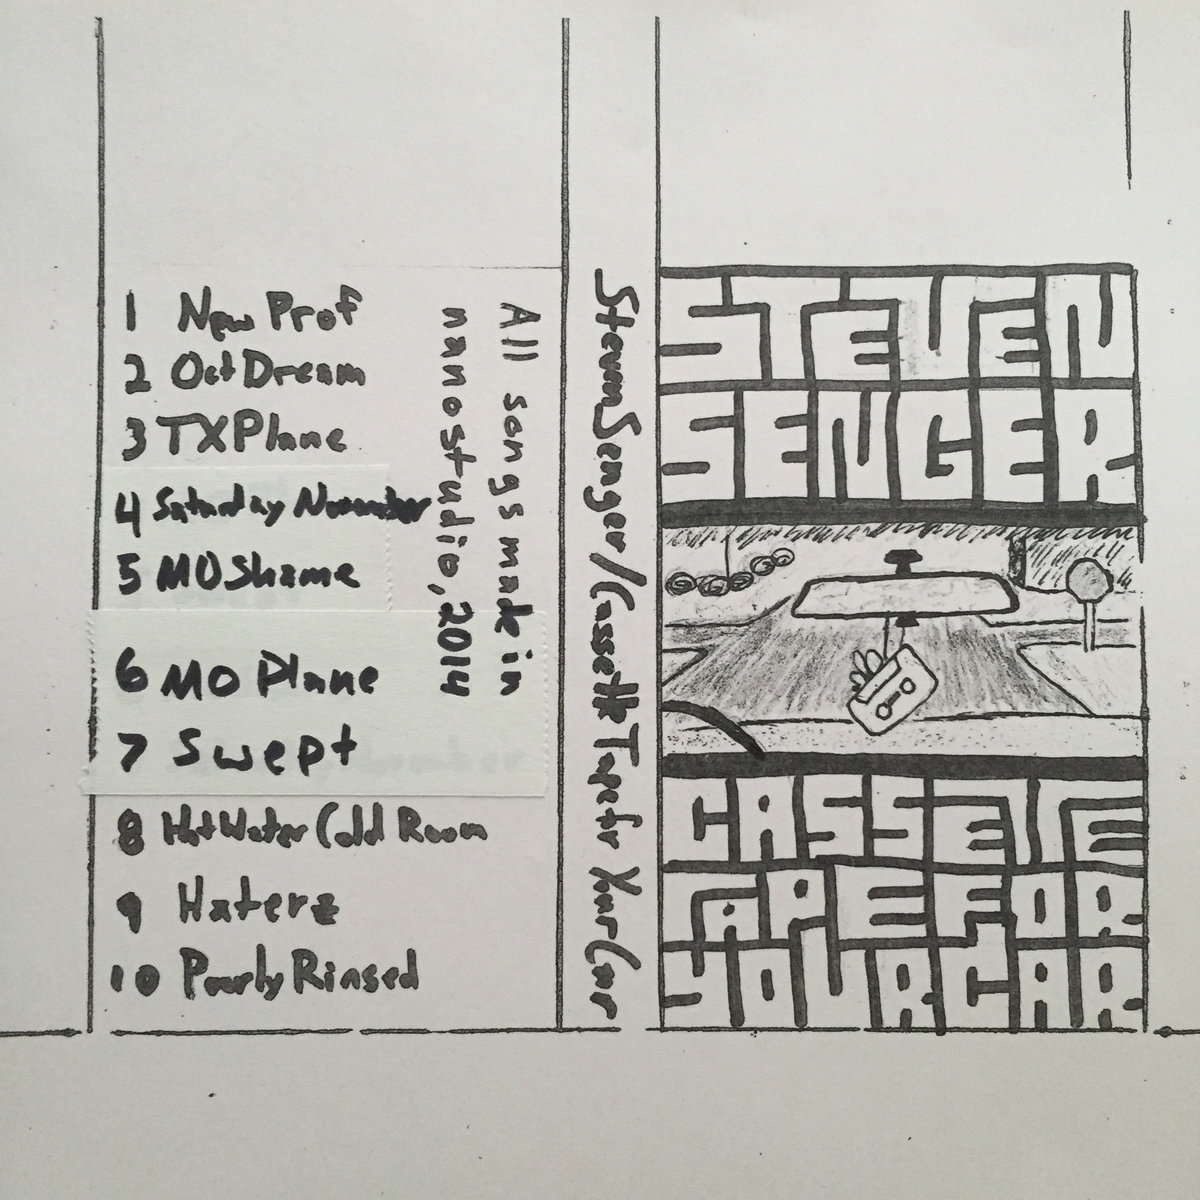 1 New Prof
2 Oct Dream
3 TX Plane
4 Saturday November
5 MO Shame
6 MO Plane
7 Swept
8 Hot Water Cold Room
9 Haterz
10 Poorly Rinsed
All songs made in
nanostudio, 2014
Steven Senger/Cassette Tape for Your Car
STEVEN
SENGER
CASSETTE
TAPE FOR
YOUR CAR